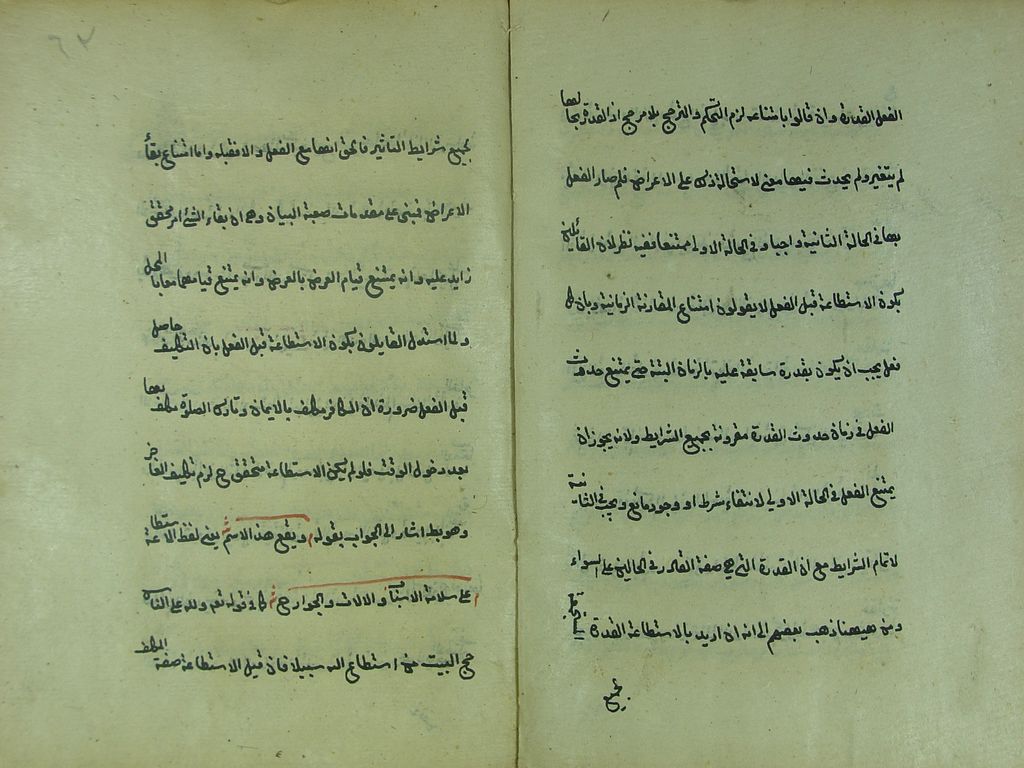 الفعل القدرة وان قالوا بامتناعه لزم التحكم والترجح بلا مرجح اذ القدرة بحالها
لم يتغير ولم يحدث فيها معنى لاستحالة ذلك على الاعراض فلم صار الفعل
بها في الحالة الثانية واجبا و في الحالة الاولى ممتنعا ففيه نظر لان القائلين
بكون الاستطاعة قبل الفعل لا يقولون امتناع المقارنة الزمانية وبان كل
فعل يجب ان يكون بقدرة سابقة عليه بالزمان البتة حتى يمتنع حدوث
الفعل في زمان حدوث القدرة مقرونة بجميع الشرايط ولانه يجوز ان
يمتنع الفعل في الحالة الاولى لانتفاء شرط او وجود مانع ويجب في الثانية
لاتمام الشرايط مع ان القدرة التي هي صفة القادر في الحالين على السواء
ومن هيهنا ذهب بعضهم الى انه ان اريد بالاستطاعة القدرة المستجمعة
بجميع
٦٢
بجميع شرايط التأثير فالحق انها مع الفعل والا فقبله واما امتناع بقأ
الاعراض فمبنى على مقدمات صعبة البيان وهى ان بقاء الشئ امر محقق
زايد عليه وانه يمتنع قيام العرض بالعرض وانه يمتنع قيامهما معا بالمحل
ولما استدل القايلون بكون الاستطاعة قبل الفعل بان التكليف حاصل
قبل الفعل ضرورة ان الكافر مكلف بالايمان وتارك الصلوة مكلف بها
بعد دخول الوقت فلو لم يكن الاستطاعة متحقق ح لزم تكليف العاجز
وهو بط اشار الى الجواب بقوله م ويقع هذا الاسم ش يعنى لفظ الاستطاعة
م على سلامة الاسباب والالات والجوارح ش كما في قوله تعه ولله على الناس
حج البيت من استطاع اليه سبيلا فان قيل الاستطاعة صفة المكلف